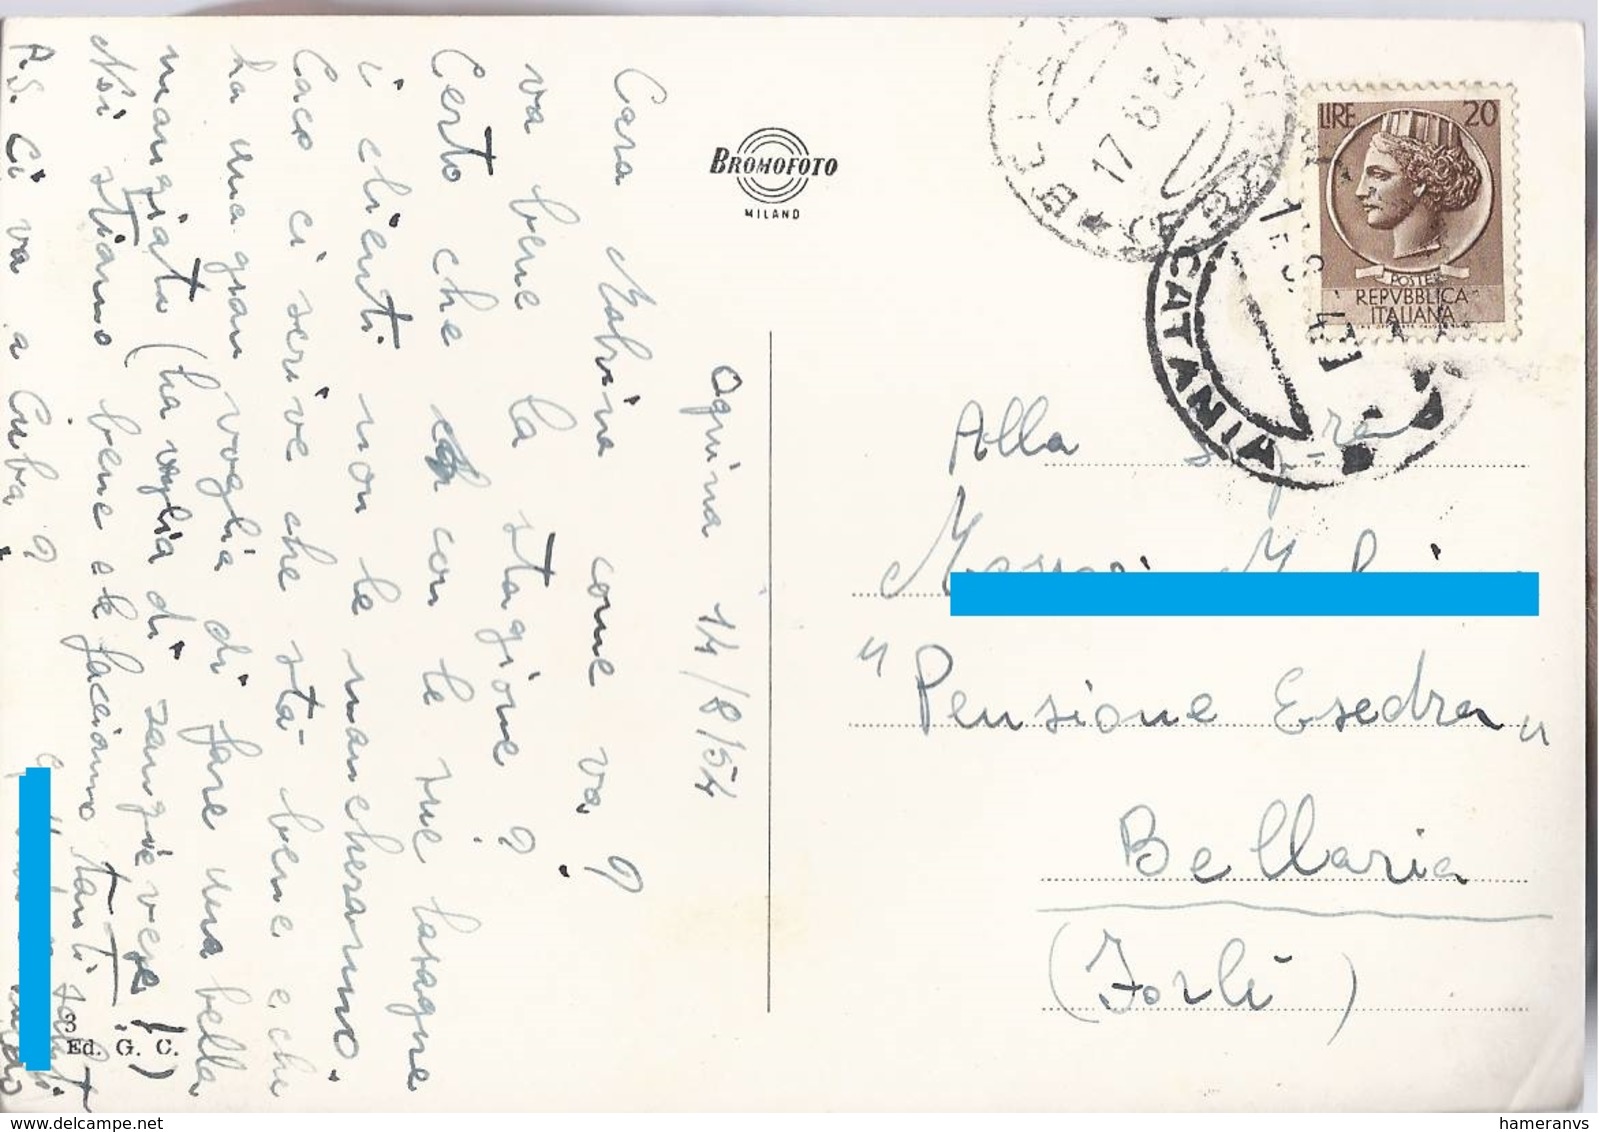 Ognina 14/8/54
Cara come va ?
va bene la stagione ?
Certo che con le tue lasagne
i clienti non le mancheranno.
Caco ci scrive che sta bene e che
ha una gran voglia di fare una bella
mangiata (ha voglia di verse !)
Noi stiamo bene e le facciamo tanti saluti
P.S. Ci va a Cuba ?
Ed. G. C.
BROMOFOTO
MILANO
17 8 54
CATANIA
LIRE 20
POSTE
REPVBBLICA
ITALIANA
Alla
"Pensione Esedra"
Bellaria
(Forlì)
hameranvs
the-best-of-website.com